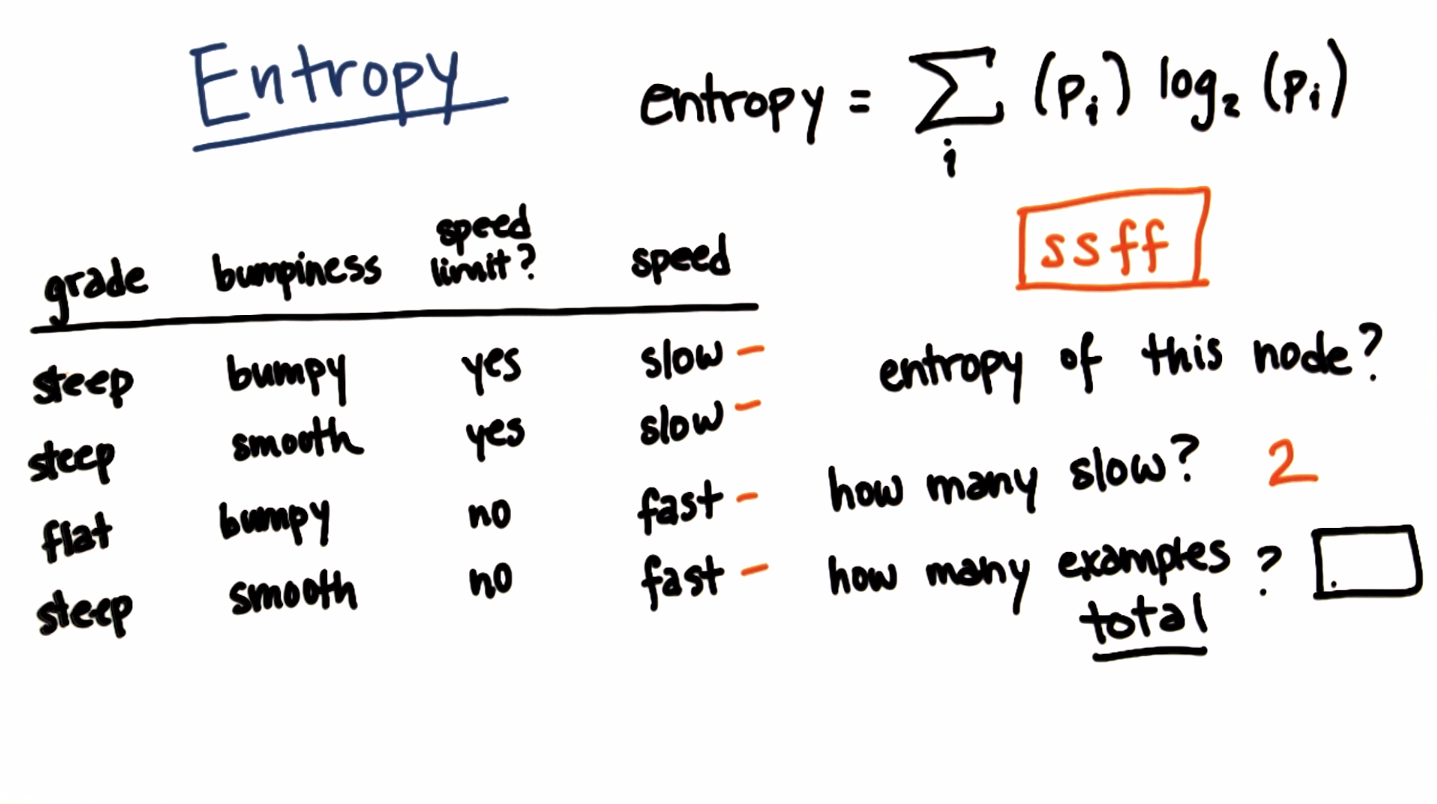 Entropy
entropy = Σ (pᵢ) log₂ (pᵢ)
i
ssff
grade bumpiness speed limit? speed
steep bumpy yes slow -
steep smooth yes slow -
flat bumpy no fast -
steep smooth no fast -
entropy of this node?
how many slow? 2
how many examples total?